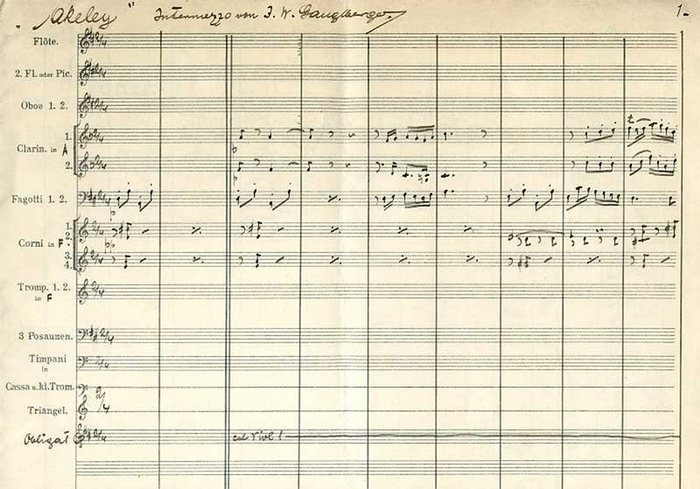 „Akeley" Intermezzo von J. W. Ganglberger. 1-
Flöte.
2. Fl. oder Pic.
Oboe 1. 2.
1.
Clarin. in A
2.
Fagotti 1. 2.
1.
2.
Corni in F
3.
4.
Tromp. 1. 2.
in F
3 Posaunen.
Timpani
in
Cassa u. kl. Trom.
Triangel.
Obligat col Viol I